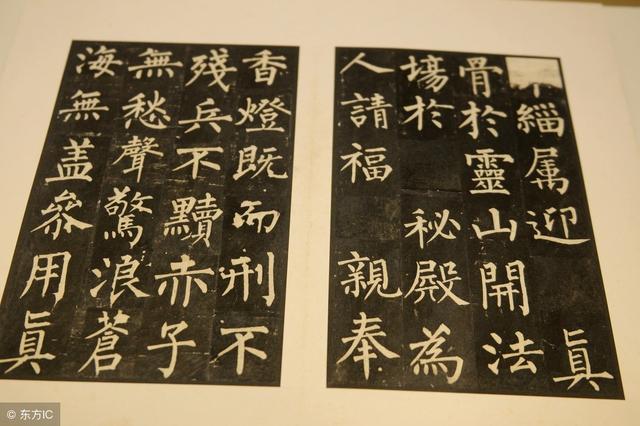 緇属迎 真
骨於靈山開法
場於 秘殿為
人請福 親奉
香燈既而刑不
殘兵不黷赤子
無愁聲驚浪蒼
海無盖參用真
© 东方IC